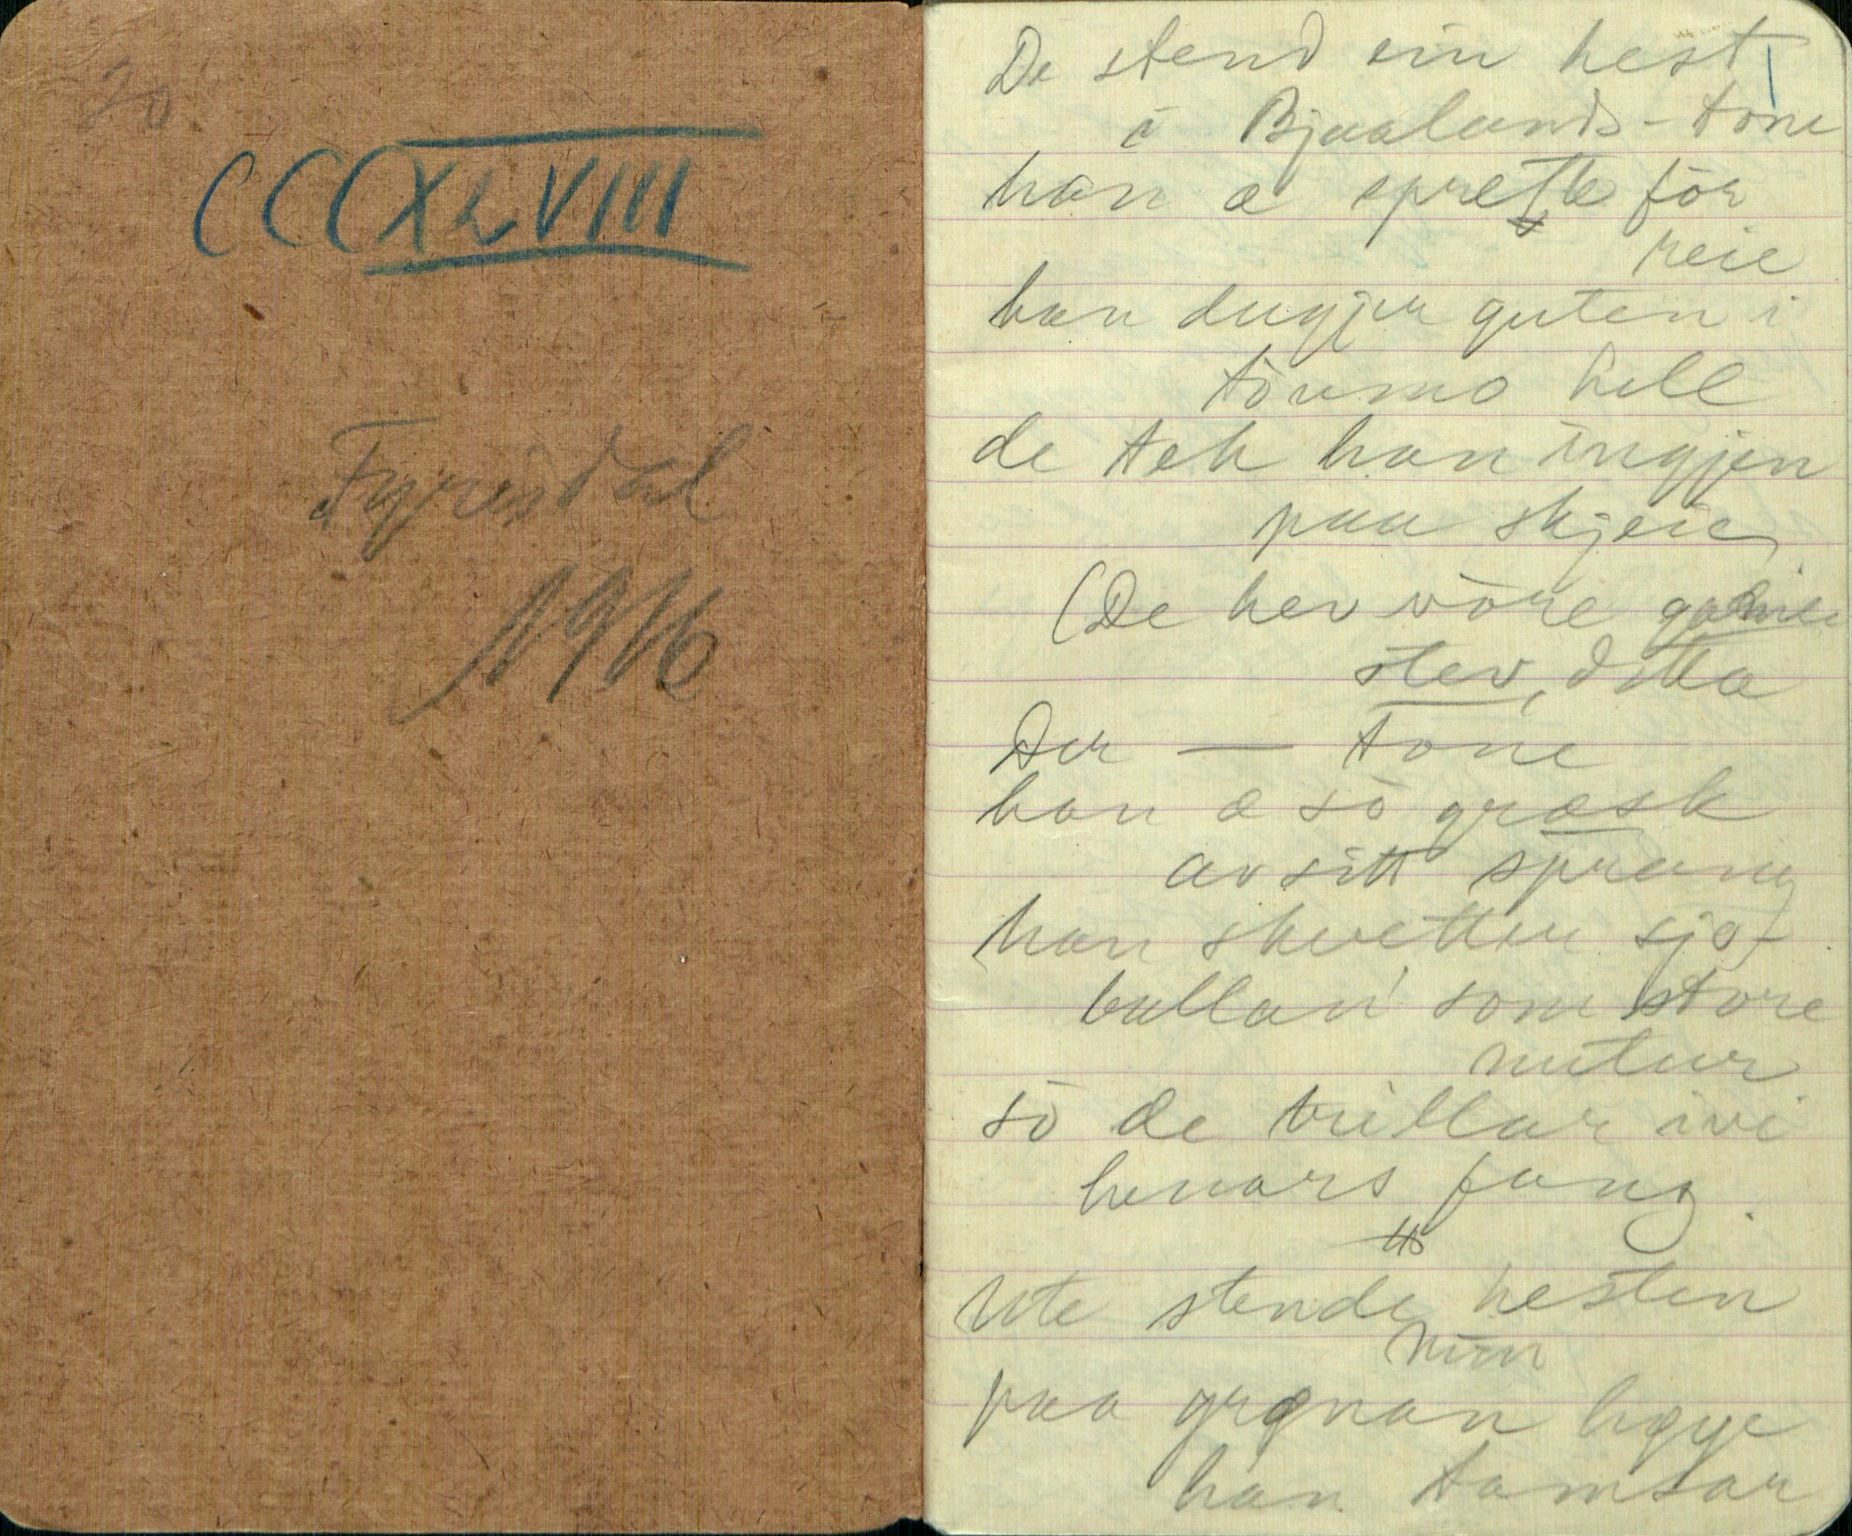 20
CCCXLVIII
Fyresdal
1916
De stend ein hest
i Bjaalands-tone
han æ sprette för
reie
han dugjer guten i
tòumo hell
de tek han ingjen
paa skjeie
(De hev vòre gamle
stev, ditta
Der — tone
han æ sò græsk
av sitt sprang
han skvetter sjo-
bullan' som store
nutur
sò de trillar ivi
henars fang.
Ute stende hesten
min
paa grǫnan høye
han tamsar